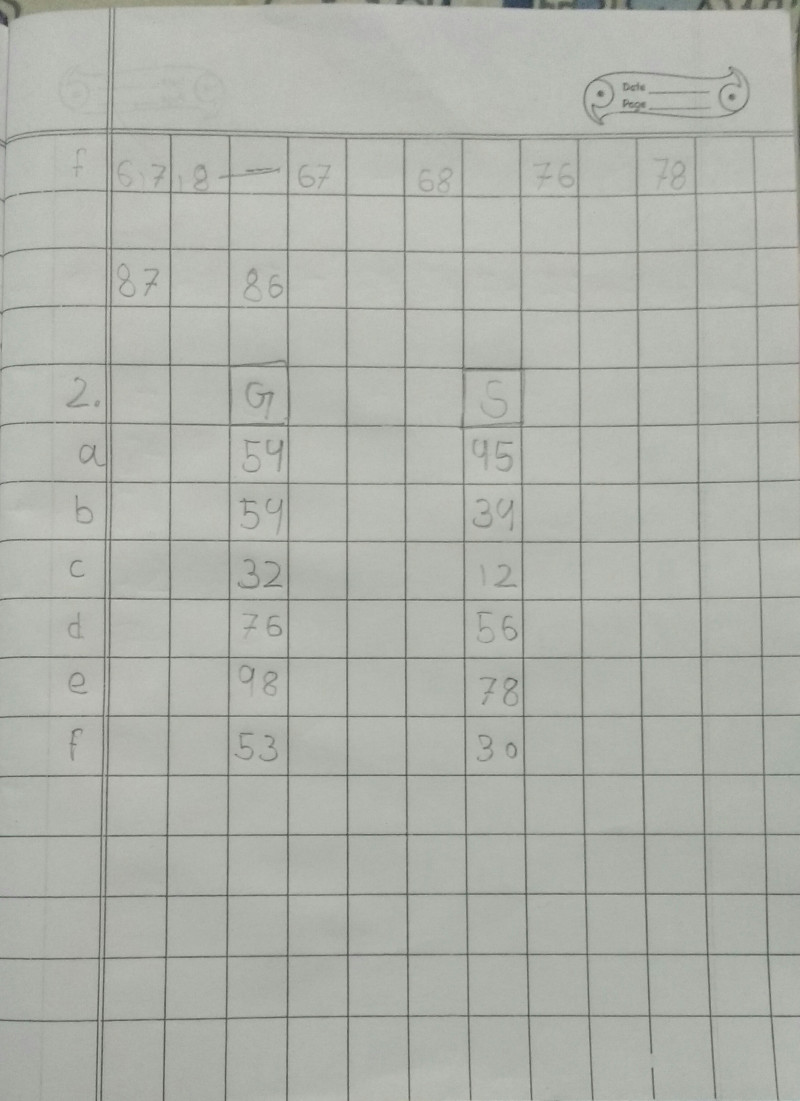 Date
Page
f 6,7,8 — 67 68 76 78
87 86
2. G S
a 54 45
b 54 34
c 32 12
d 76 56
e 98 78
f 53 30